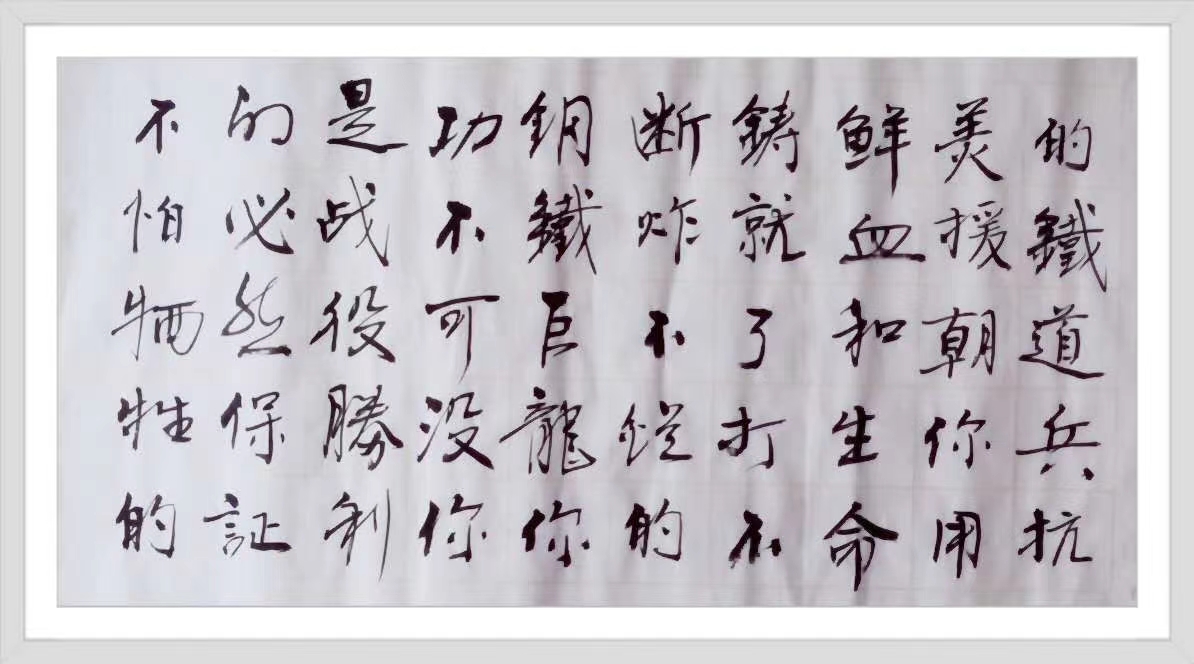 的鐵道兵抗
美援朝你用
鲜血和生命
鑄就了打不
断炸不的
鋼鐵巨龍你
功不可没你
是战役勝利
的必然保証
不怕牺牲的